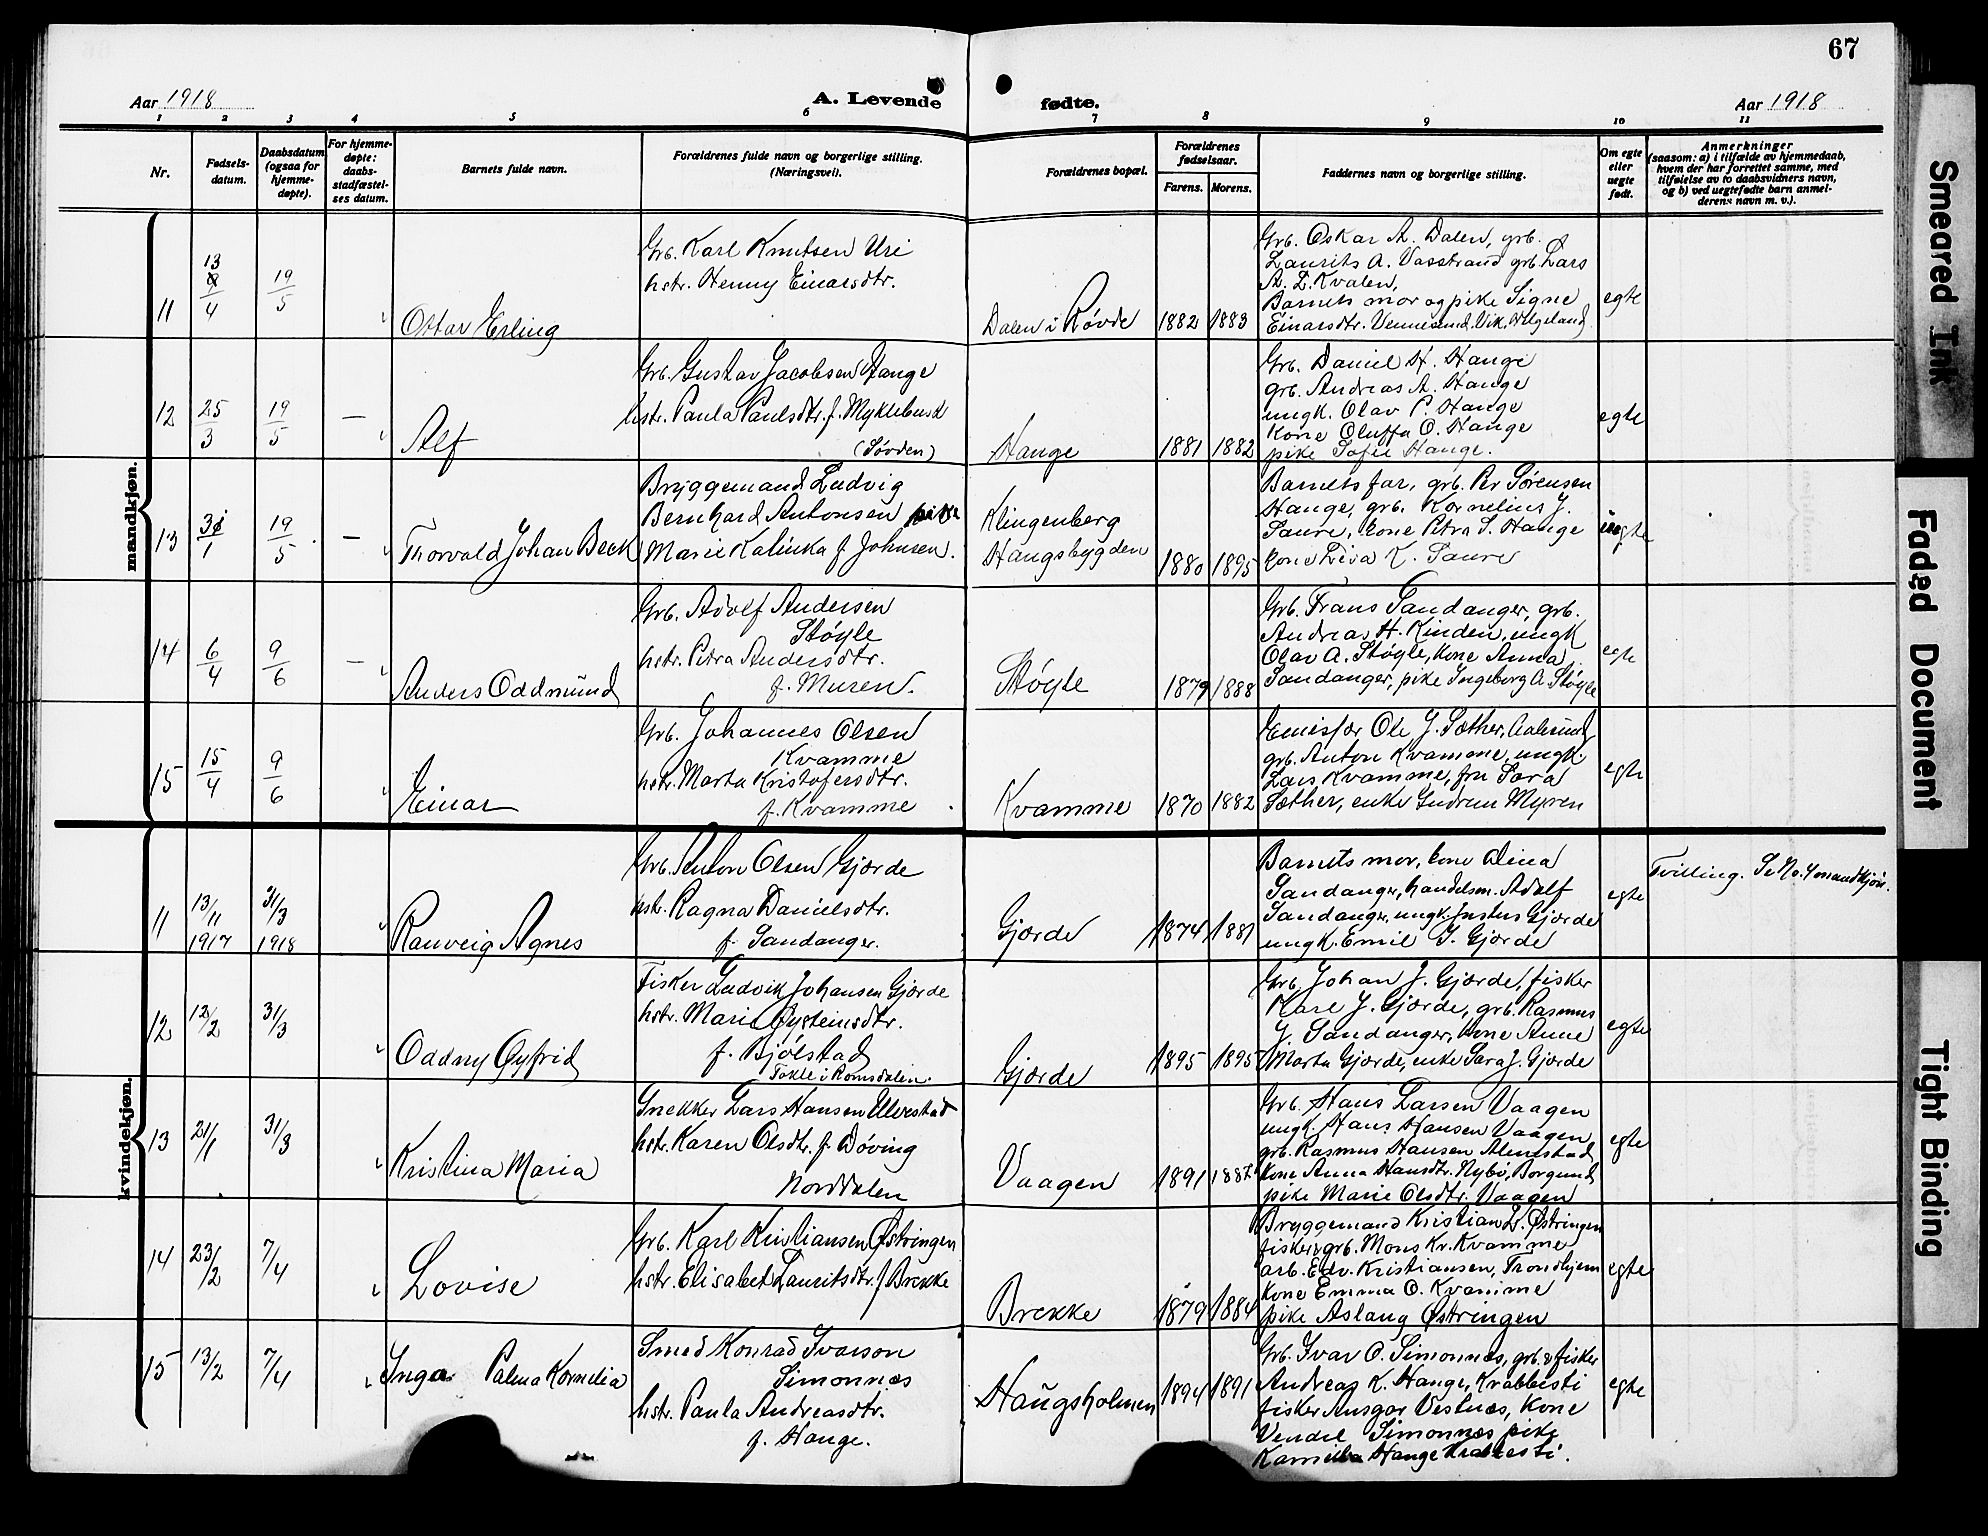 67
Aar 1918
A. Levende
fødte.
Aar 1918
1 2 3 4 5 6 7 8 9 10 11
Nr.
Fødsels-
datum.
Daabsdatum
(ogsaa for
hjemme-
døpte).
For hjemme-
døpte:
daabs-
stadfæstel-
ses datum.
Barnets fulde navn.
Forældrenes fulde navn og borgerlige stilling.
(Næringsvei).
Forældrenes bopæl.
Forældrenes
fødselsaar.
Farens. Morens.
Faddernes navn og borgerlige stilling.
Om egte
eller
uegte
født.
Anmerkninger
(saasom: a) i tilfælde av hjemmedaab,
hvem der har forrettet samme, med
tilføielse av to daabsvidners navn,
og b) ved uegtefødte barn anmel-
derens navn m. v.).
mandkjøn.
11
13/4
19/5
Ottar Erling
Grb. Karl Knutsen Uri
hstr. Henny Einarsdtr.
Dalen i Røvde
1882 1883
Grb. Oskar A. Dalen, grb.
Laurits A. Vasstrand grb. Lars
A. L. Kvalen,
Barnets mor og pike Signe
Einarsdtr. Vennesund, Vik, Helgeland
egte
12
25/3
19/5
—
Alf
Grb. Gustav Jacobsen Hauge
hstr. Paula Paulsdtr. f. Myklebust
(Søvden)
Hauge
1881 1882
Grb. Daniel H. Hauge
grb. Andreas A. Hauge
ungk. Olav P. Hauge
Kone Oluffa O. Hauge
pike Sofie Hauge.
egte
13
31/1
19/5
—
Thorvald Johan Beck
Bryggemand Ludvig
Bernhard Antonsen pike
Marie Kalinka f. Johnsen.
Klingenberg
Haugsbygden
1880 1895
Barnets far, grb. Per Sørensen
Hauge, grb. Kornelius J.
Saure, kone Petra S. Hauge
kone Liva K. Saure
uegte
14
6/4
9/6
—
Anders Oddmund
Grb. Adolf Andersen
Støyle
hstr. Petra Andersdtr.
f. Muren.
Støyle
1879 1888
Grb. Frans Sandanger, grb.
Andreas H. Kinden, ungk
Olav A. Støyle, kone Anna
Sandanger, pike Ingeborg A. Støyle
egte
15
15/4
9/6
Einar
Grb. Johannes Olsen
Kvamme
hstr. Marta Kristofersdtr.
f. Kvamme
Kvamme
1870 1882
Emisfær Ole J. Sæther, Aalesund,
grb. Anton Kvamme, ungk.
Lars Kvamme, fru Sara
Sæther, enke Gudrun Myren
egte
kvindekjøn.
11
13/11
1917
31/3
1918
Ranveig Agnes
Grb. Anton Olsen Gjørde
hstr. Ragna Danielsdtr.
f. Sandanger.
Gjørde
1874 1881
Barnets mor, kone Dina
Sandanger, handelsm. Adolf
Sandanger, ungk. Justus Gjørde
ungk. Emil J. Gjørde
egte
Tvilling. Se No. 4 mandkjøn.
12
12/2
31/3
Oddny Øyfrid
Fisker Ludvik Johansen Gjørde
hstr. Marie Øysteinsdtr.
f. Bjølstad
i Romsdalen.
Gjørde
1895 1895
Grb. Johan J. Gjørde, fisker
Karl J. Gjørde, grb. Rasmus
J. Sandanger, kone Anne
Marta Gjørde, enke Sara J. Gjørde
egte
13
21/1
31/3
Kristina Maria
Snekker Lars Hansen Ulvestad
hstr. Karen Olsdtr. f. Døving
Norddalen
Vaagen
1891 1887
Grb. Hans Larsen Vaagen
ungk. Hans Hansen Vaagen,
grb. Rasmus Hansen Alnestad
kone Anna Hansdtr. Nybø, Borgund
pike Marie Olsdtr. Vaagen
egte
14
23/2
7/4
Lovise
Grb. Karl Kristiansen Østringen
hstr. Elisabet Lauritsdtr. f. Brekke
Brekke
1879 1884
Bryggemand Kristian L. Østringen
fisker, grb. Mons Kr. Kvamme
arb. Edv. Kristiansen, Trondhjem
kone Emma O. Kvamme
pike Aslaug Østringen
egte
15
13/2
7/4
Inga Palma Kornelia
Smed Konrad Ivarson
Simonnes
hstr. Paula Andreasdtr.
f. Hauge.
Haugsholmen
1894 1891
Grb. Ivar O. Simonnæs, grb. & fisker
Andreas K. Hauge, Krabbesti
fisker Ansgar Vestnæs, kone
Vendel Simonnæs pike
Kamilla Hauge Krabbesti.
egte
Smeared Ink
Faded Document
Tight Binding